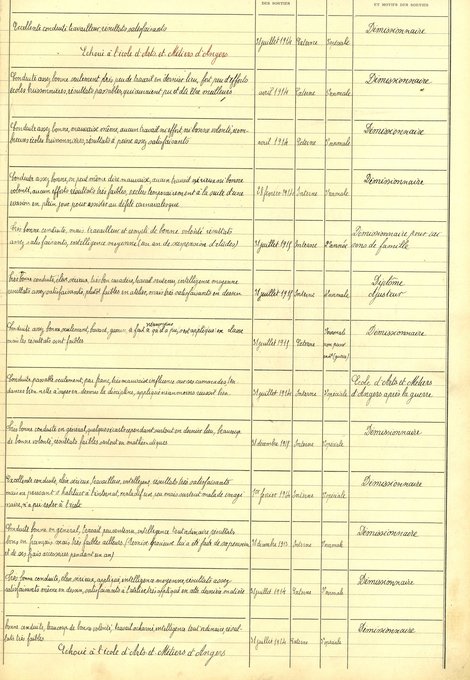 DES SORTIES
ET MOTIFS DES SORTIES
Excellente conduite, travailleur, résultats satisfaisants
31 juillet 1914 Externe Normale Démissionnaire
Echoué à l'école d'Arts et Métiers d'Angers
Conduite assez bonne seulement, peu de travail en dernier lieu, fort peu d'efforts
écoles buissonnières, résultats passables, qui auraient pu et dû être meilleurs
avril 1914 Externe Normale Démissionnaire
Conduite assez bonne, mauvaise même, aucun travail ni effort ni bonne volonté,
écoles buissonnières, résultats à peine assez satisfaisants
avril 1914 Externe Normale Démissionnaire
Conduite assez bonne, on peut même dire mauvaise, aucun travail sérieux ni bonne
volonté, aucun effort, résultats très faibles, exclu temporairement à la suite d'une
évasion en plein jour pour assister au défilé carnavalesque
28 février 1914 Interne Normale Démissionnaire
Très bonne conduite, mais travailleur et rempli de bonne volonté, résultats
assez satisfaisants, intelligence moyenne (un an de suspension d'études)
31 juillet 1915 Interne 2e année Démissionnaire pour rai
sons de famille
Très bonne conduite, élève sérieux, très bon caractère, travail soutenu, intelligence moyenne
résultats assez satisfaisants, plutôt faibles en atelier, mais très satisfaisants en dessin
31 juillet 1915 Interne Normale Diplôme
Ajusteur
Conduite assez bonne seulement, bavard,
mais les résultats sont faibles
31 juillet 1915 Externe Normale Démissionnaire
Conduite passable seulement, peu franc, très mauvaise influence sur ses camarades,
31 juillet 1914 Interne Spéciale Ecole d'Arts et Métiers
d'Angers après la guerre
Très bonne conduite en général, quelques écarts cependant surtout en dernier lieu, beaucoup
de bonne volonté, résultats faibles surtout en mathématiques
31 décembre 1915 Interne Spéciale Démissionnaire
Excellente conduite, élève sérieux, travailleur, intelligent, résultats très satisfaisants
mais ne pouvant s'habituer à l'internat,
naire, n'a pu rester à l'école
1er février 1914 Interne Spéciale Démissionnaire
Conduite bonne en général, travail peu soutenu, intelligence tout ordinaire, résultats
bons en français mais très faibles ailleurs,
et de ses frais accessoires pendant un an)
31 décembre 1913 Interne Normale Démissionnaire
Très bonne conduite, élève sérieux, appliqué, intelligence moyenne, résultats assez
satisfaisants même en dessin, satisfaisants à l'atelier,
31 juillet 1914 Externe Normale Démissionnaire
Bonne conduite, beaucoup de bonne volonté, travail acharné, intelligence tout ordinaire, résul
tats très faibles
31 juillet 1914 Externe Spéciale Démissionnaire
Echoué à l'école d'Arts et Métiers d'Angers